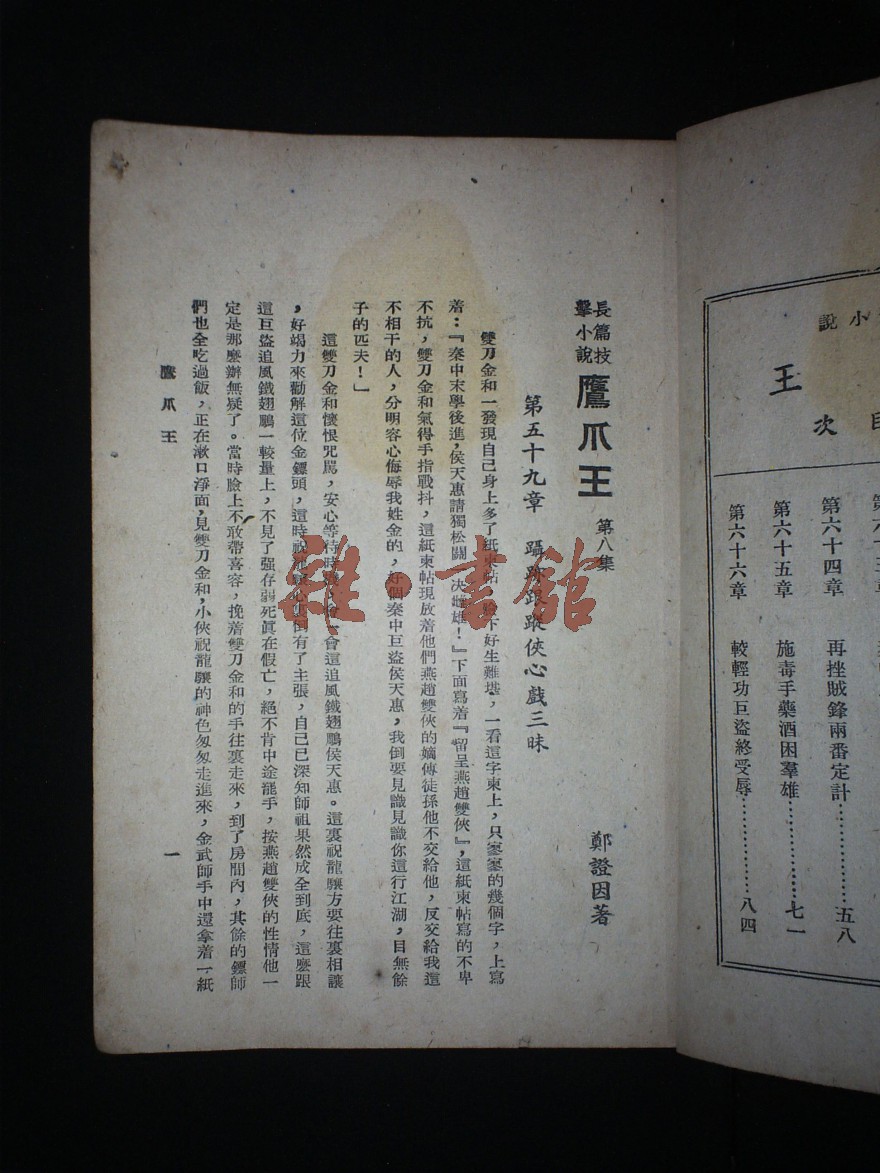 小說
王
目次
第六十四章 再挫賊鋒兩番定計…………五八
第六十五章 施毒手藥酒困羣雄…………七一
第六十六章 較輕功巨盜終受辱…………八四
長篇技擊小說 鷹爪王 第八集
鄭證因著
第五十九章 躡跡跟蹤俠心戲三昧
雙刀金和一發現自己身上多了紙柬帖，臉下好生難堪，一看這字柬上，只寥寥的幾個字，上寫
着：『秦中末學後進，侯天惠請獨松關一決雌雄！』下面寫着『留呈燕趙雙俠』，這紙柬帖寫的不卑
不抗，雙刀金和氣得手指戰抖，這紙柬帖現放着他們燕趙雙俠的嫡傳徒孫他不交給他，反交給我這
不相干的人，分明容心侮辱我姓金的，好個秦中巨盜侯天惠，我倒要見識見識你這行江湖，目無餘
子的匹夫！」
這雙刀金和懷恨咒罵，安心等待時，會一會這追風鐵翅鵬侯天惠。這裏祝龍驤方要往裏相讓
，好竭力來勸解這位金鏢頭，這時祝龍驤心裏倒有了主張，自己已深知師祖果然成全到底，這麼跟
這巨盜追風鐵翅鵬一較量上，不見了强存弱死眞在假亡，絕不肯中途罷手，按燕趙雙俠的性情他一
定是那麼辦無疑了。當時臉上不敢帶喜容，挽着雙刀金和的手往裏走來，到了房間內，其餘的鏢師
們也全吃過飯，正在漱口淨面，見雙刀金和，小俠祝龍驤的神色匆匆走進來，金武師手中還拿着一紙
鷹爪王
一
雜·書館